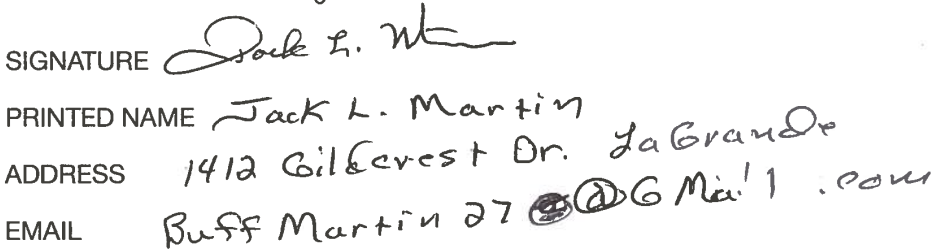 SIGNATURE Jack L. M
PRINTED NAME Jack L. Martin
ADDRESS 1412 Gildcrest Dr. LaGrande
EMAIL Buff Martin 27 @ G Mail . com